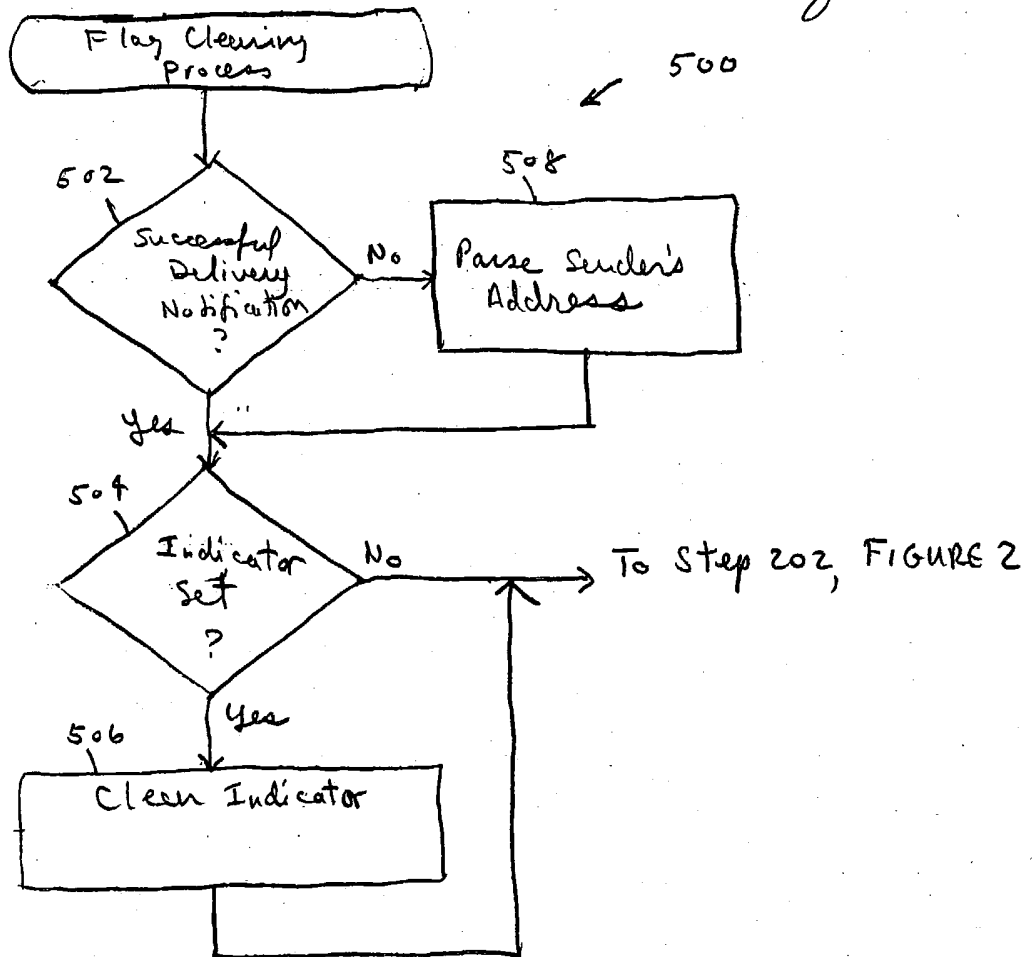 500
Flag Clearing
Process
502
Successful
Delivery
Notification
?
No
508
Parse Sender's
Address
Yes
504
Indicator
Set
?
No
To Step 202, FIGURE 2
Yes
506
Clear Indicator